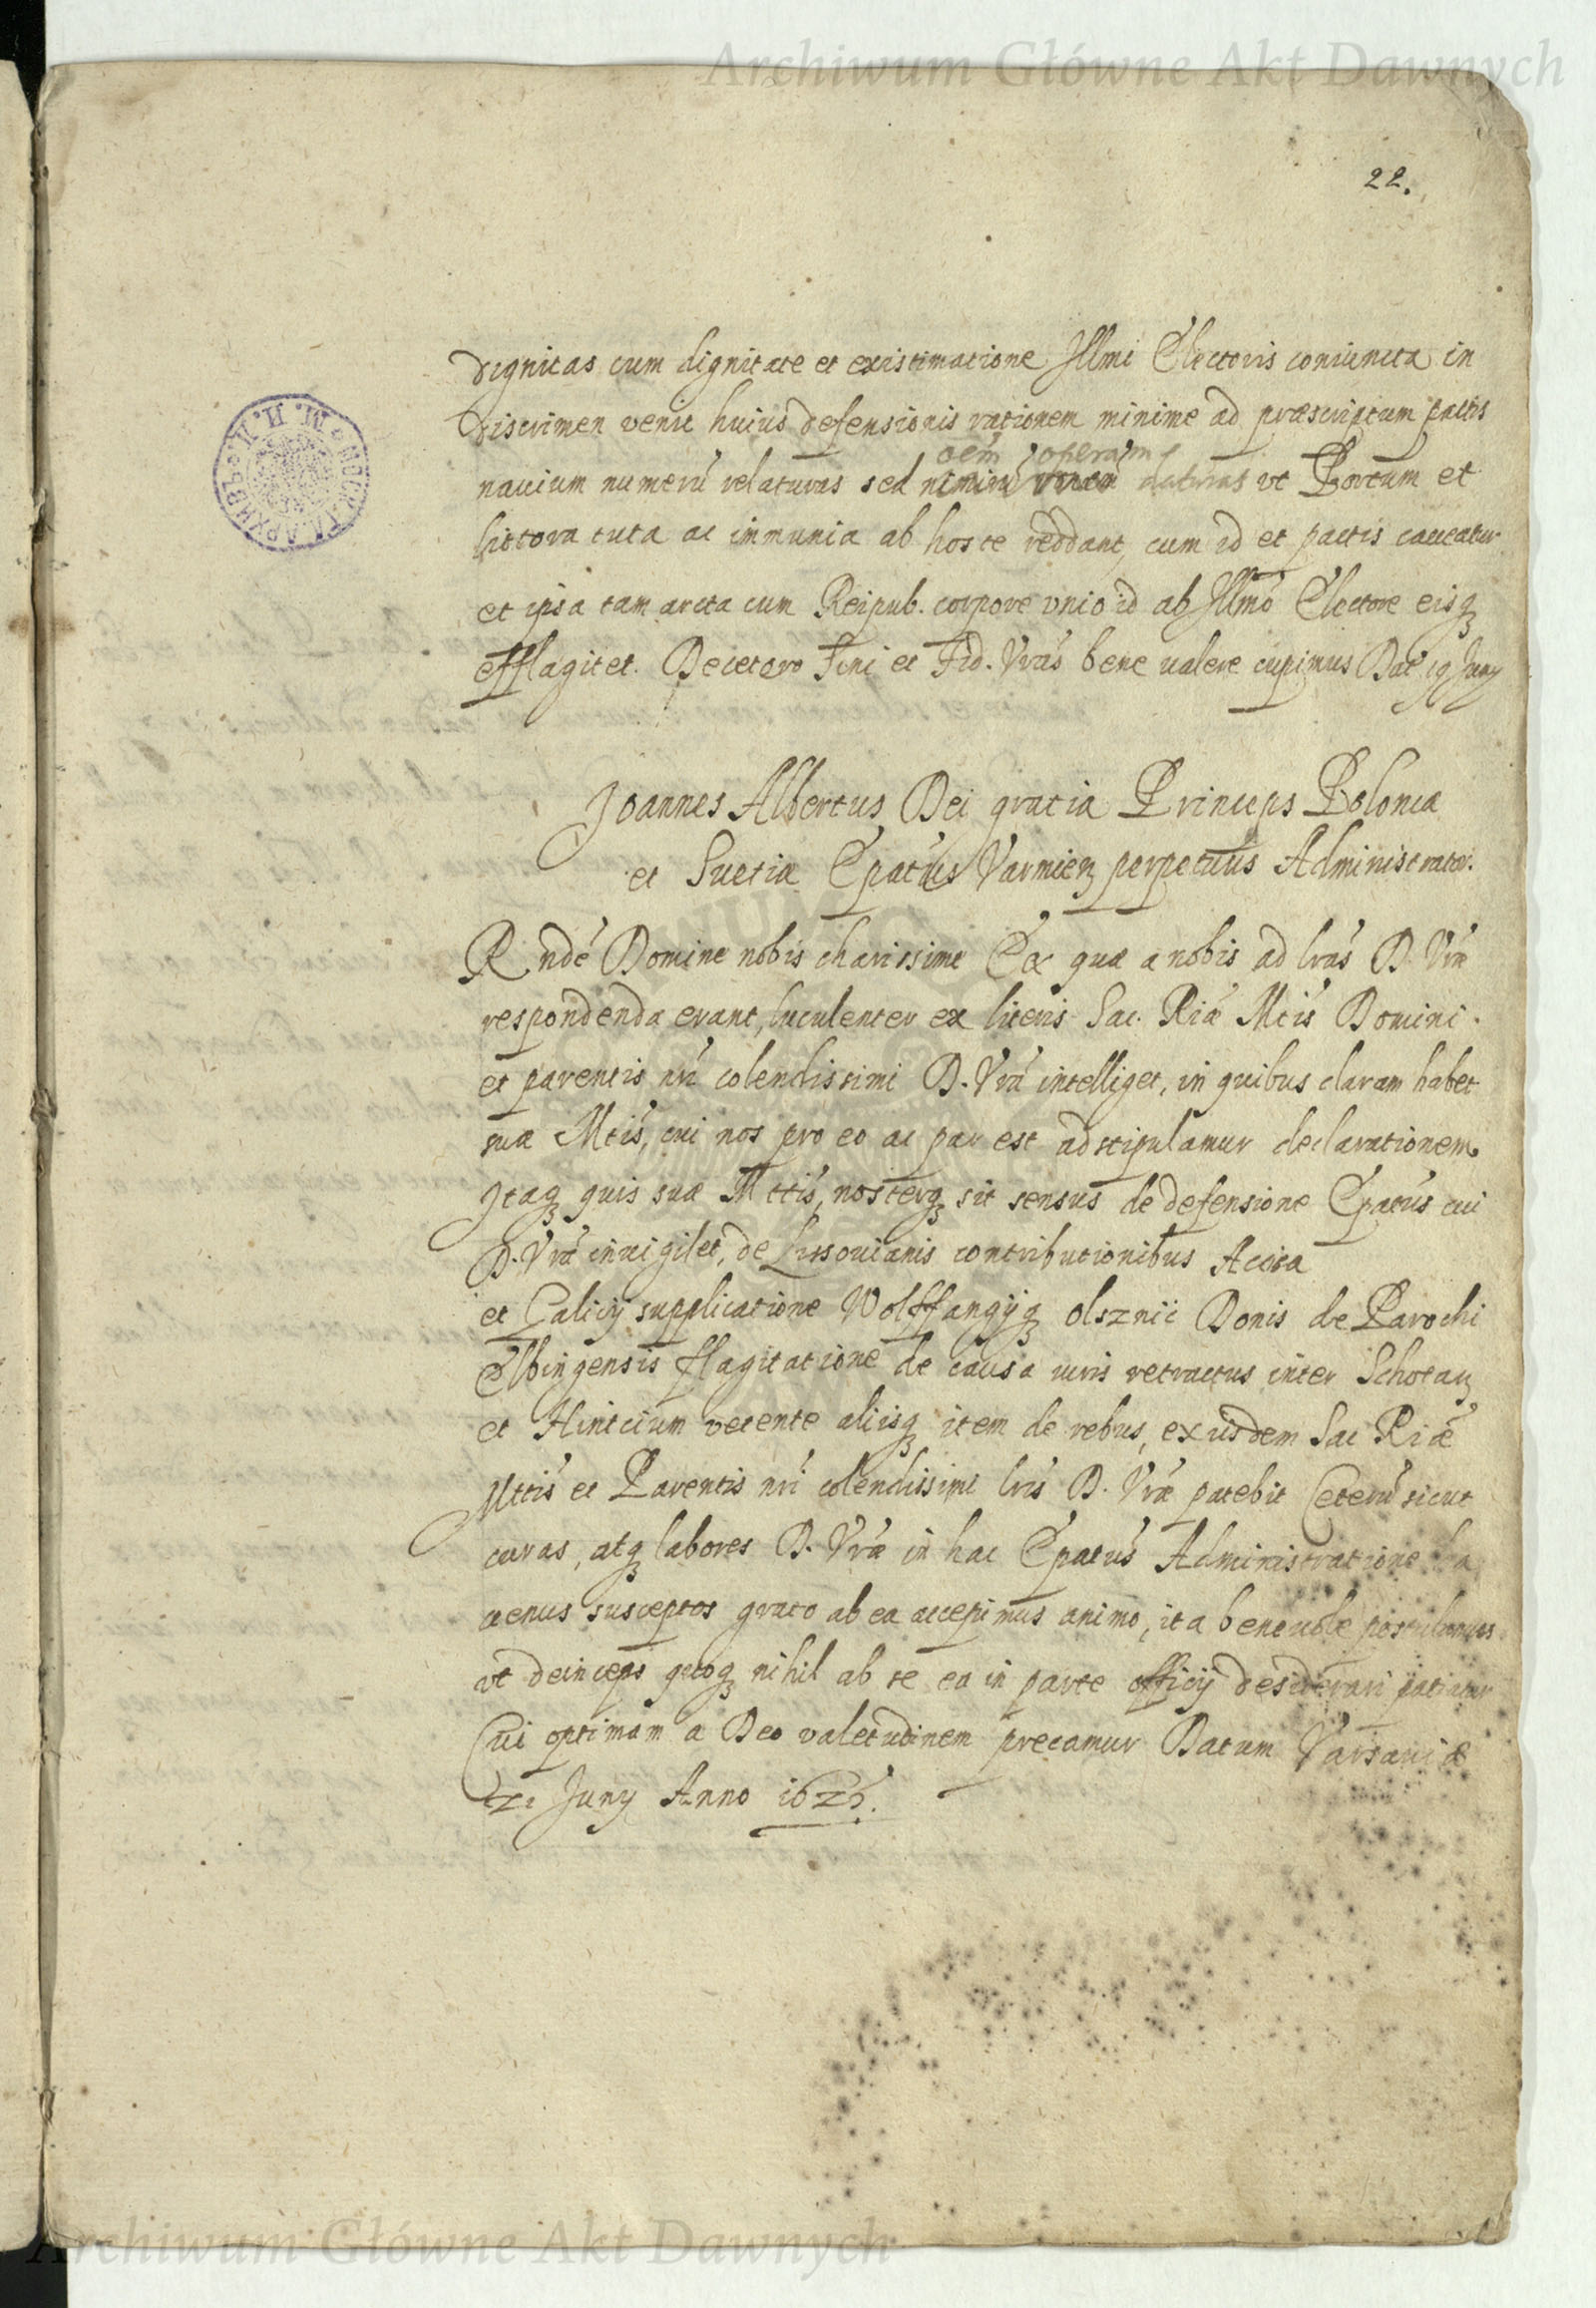 Archiwum Główne Akt Dawnych
22.
dignitas cum dignitate et existimatione Illmi Electoris coniuncta in
discrimen venit huius defensionis rationem minime ad præscriptum pactis
oem operam
nauium numerũ relaturas sed daturas vt Portum et
littora tuta ac immunia ab hoste reddant, cum id et pactis caueatur
et ipsa tam arcta cum Reipub. corpore vnio id ab Illmo Electore eisq
efflagitet. De cetero Sini et Fid. Vras bene ualere cupimus Dat 19 Juny
Joannes Albertus Dei gratia Princeps Poloniæ
et Suetiæ Epatus Varmien perpetuus Administrator.
Rnde Domine nobis charissime Eæ quæ a nobis ad lras D. Vræ
respondenda erant, luculenter ex literis Sac. Riæ Mtis Domini
et parentis nri colendissimi D. Vra intelliget, in quibus claram habet
suæ Mtis, cui nos pro eo ac par est adstipulamur declarationem.
Itaq quis suæ Mttis, nosterq sit sensus de defensione Epatus cui
D. Vra inuigilet, de Lissouianis contributionibus
et Galicij supplicatione Wolffangijq olsznii Donis de Parochi
Elbingensis flagitatione de causa iuris retractus inter
et vetente aliisq item de rebus, ex iisdem Sac Riæ
Mttis et Parentis nri colendissimi lris D. Vræ patebit Ceterũ sicut
curas, atq labores D. Vræ in hac Epatus Administratione ha
ctenus susceptos grato ab ea accepimus animo, ita beneuole postulamus
vt deinceps quoq nihil ab se ea in parte officij desiderari patiatur
Cui optimam a Deo valetudinem precamur Datum Varsauiæ
Juny Anno 1625.
Archiwum Główne Akt Dawnych